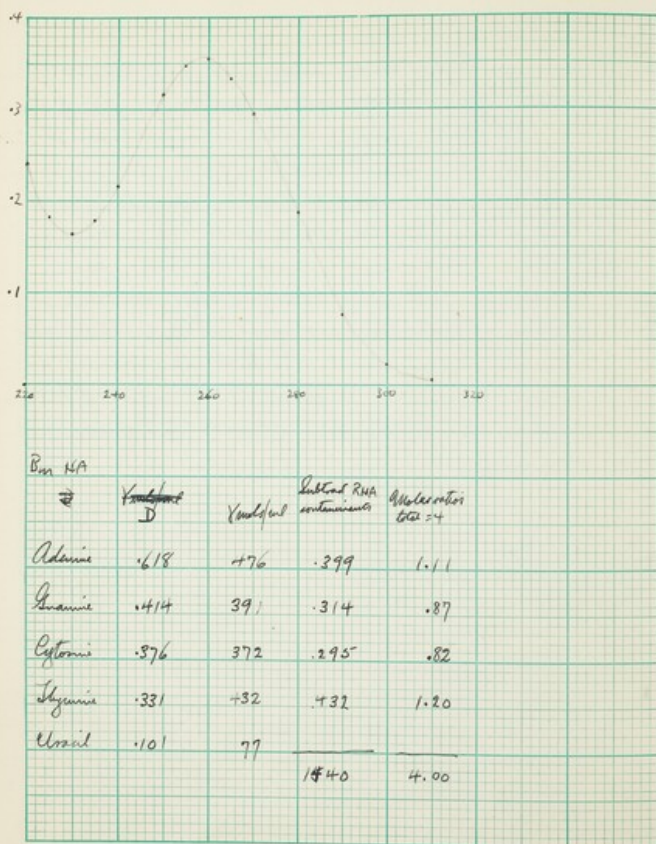 .4
.3
.2
.1
220 240 260 280 300 320
Bm NA
D γmols/ml Subtract RNA contaminants Molar ratios total = 4
Adenine .618 476 .399 1.11
Guanine .414 391 .314 .87
Cytosine .376 372 .295 .82
Thymine .331 432 .432 1.20
Uracil .101 77
1440 4.00